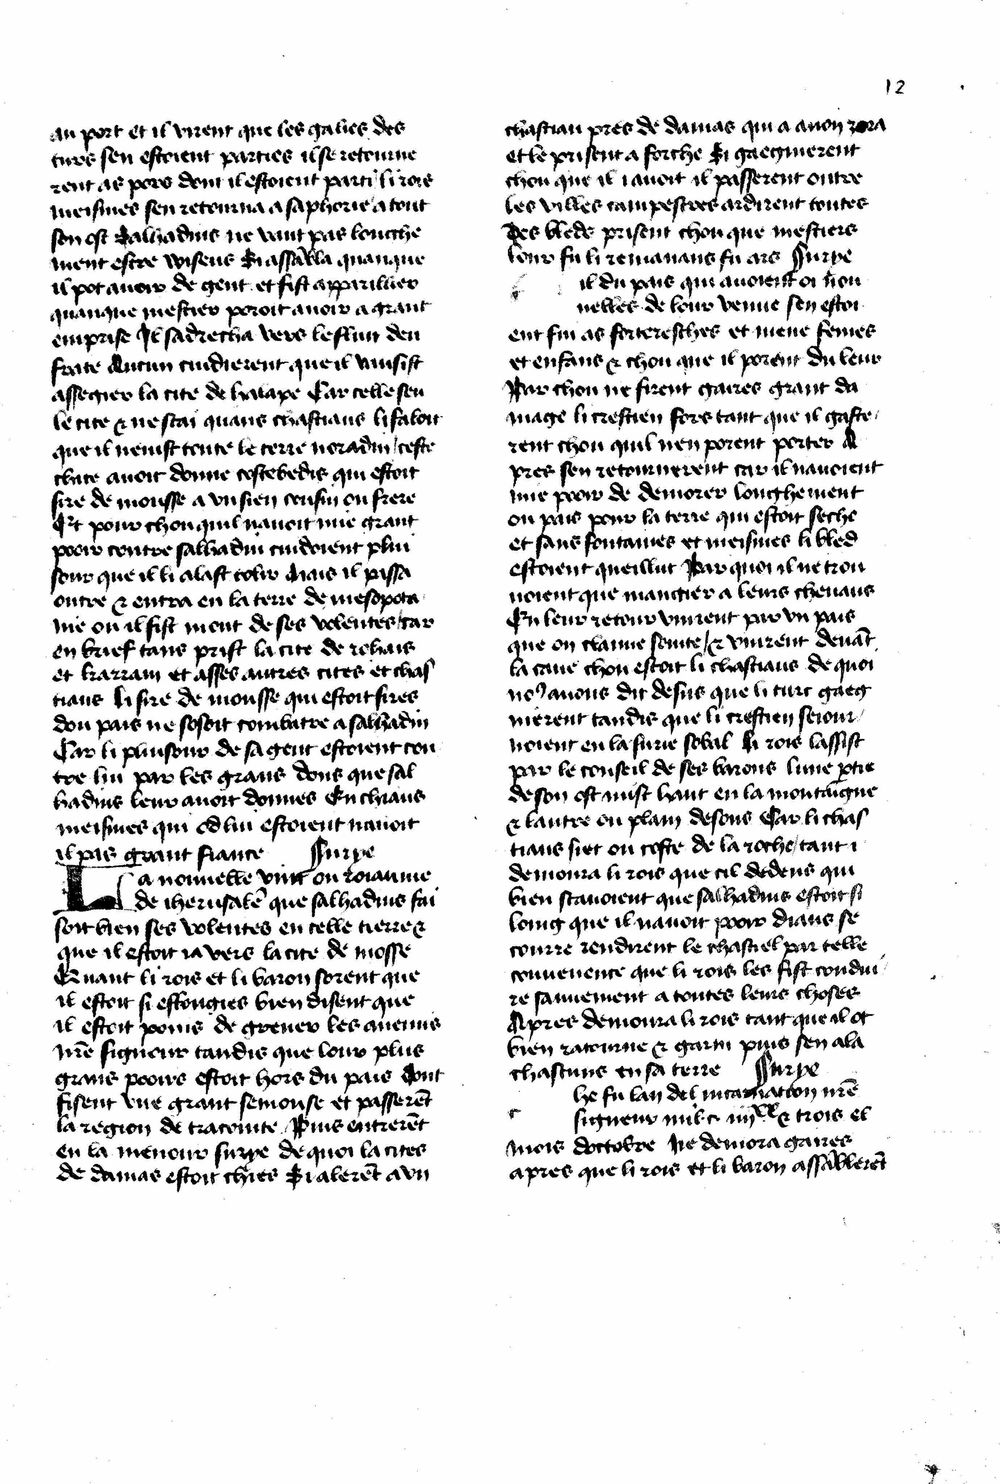 12
au port et il virent que les galies des
turs sen estoient parties il se retourne
rent as pors dont il estoient parti li rois
meismes sen retourna a saphorie a tout
son ost Salhadins ne vaut pas longhe
ment estre wiseus Si assabla quanque
il pot avoir de gent et fist apparillier
quanque mestier poroit avoir a grant
emprise Il sadrecha vers le flun deu
frate Aucun cuidierent que il vausist
assegier la cite de halape Car celle seu
le cite & ne stai quans chastiaus li faloit
que il neuist toute le terre noradin / ceste
chite avoit donne costebedis qui estoit
sire de mousse a un sien cousin ou frere
Et pour chou quil navoit mie grant
pooir contre salhadin cuidoient plui
sour que il li alast tolir Mais il passa
outre & entra en la terre de mesopota
mie ou il fist mout de ses volentes / car
en brief tans prist la cite de rohais
et karram et asses autres cites et chas
tiaus li sire de mousse qui estoit sires
dou pais ne sosoit combatre a salhadin
Car li pluisour de sa gent estoient con
tre lui par les grans dons que sal
hadins leur avoit donnes En chiaus
meismes qui od lui estoient navoit
il pas grant fiance Surye
La nouvelle vint ou roiaume
de iherusalē que salhadins fai
soit bien ses volentes en celle tierre &
que il estoit ia vers la cite de mosse
Quant li rois et li baron sorent que
il estoit si eslongies bien disent que
il estoit poins de grever les anemis
nrē signeur tandis que lour plus
grans pooirs estoit hors du pais Dont
fisent une grant semonse et passerēt
la region de traconite Puis entrerēt
en la menour surye de quoi la cites
de damas estoit chies Si alerēt a un
chastiau pres de damas qui a a non zora
et le prisent a forche Si gaegnierent
chou que il i avoit il passerent outre
les villes campestres ardirent toutes
Des bleds prisent chou que mestiers
lour fu li remanans fu ars Surye
il du pais qui avoient oi non
nelles de lour venue sen estoi
ent fui as forteresches et mene femes
et enfans & chou que il porent du leur
Par chou ne firent gaires grant da
mage li crestien fors tant que il gaste
rent chou quil nen porent porter A
pres sen retournerent car il navoient
mie pooir de demorer longhement
ou pais pour la terre qui estoit seche
et sans fontaines et meismes li bled
estoient queillut Par quoi il ne trou
voient que mangier a leurs chevaus
En leur retour vinrent par un pais
que on claime soite / & vinrent devāt
la cave chou estoit li chastiaus de quoi
noꝰ avons dit desus que li turc gaeg
nierent tandis que li crestien seiour
noient en la surie sobal li rois lassist
par le conseil de ses barons lune ptie
de son ost mist haut en la montaigne
& lautre ou plain desous Car li chas
tiaus siet ou coste de la roche / tant i
demoura li rois que cil dedens qui
bien scavoient que salhadins estoit si
loing que il navoit pooir diaus se
courre rendirent le chastiel par telle
convenence que li rois les fist condui
re sauvement a toutes leurs choses
Apres demoura li rois tant que il ot
bien ratourne & garni puis sen ala
chascuns en sa terre Surye
he fu lan del incarnation nrē
signeur mil c iiij xx & trois el
mois doctobre Ne demora gaires
apres que li rois et li baron assablerēt